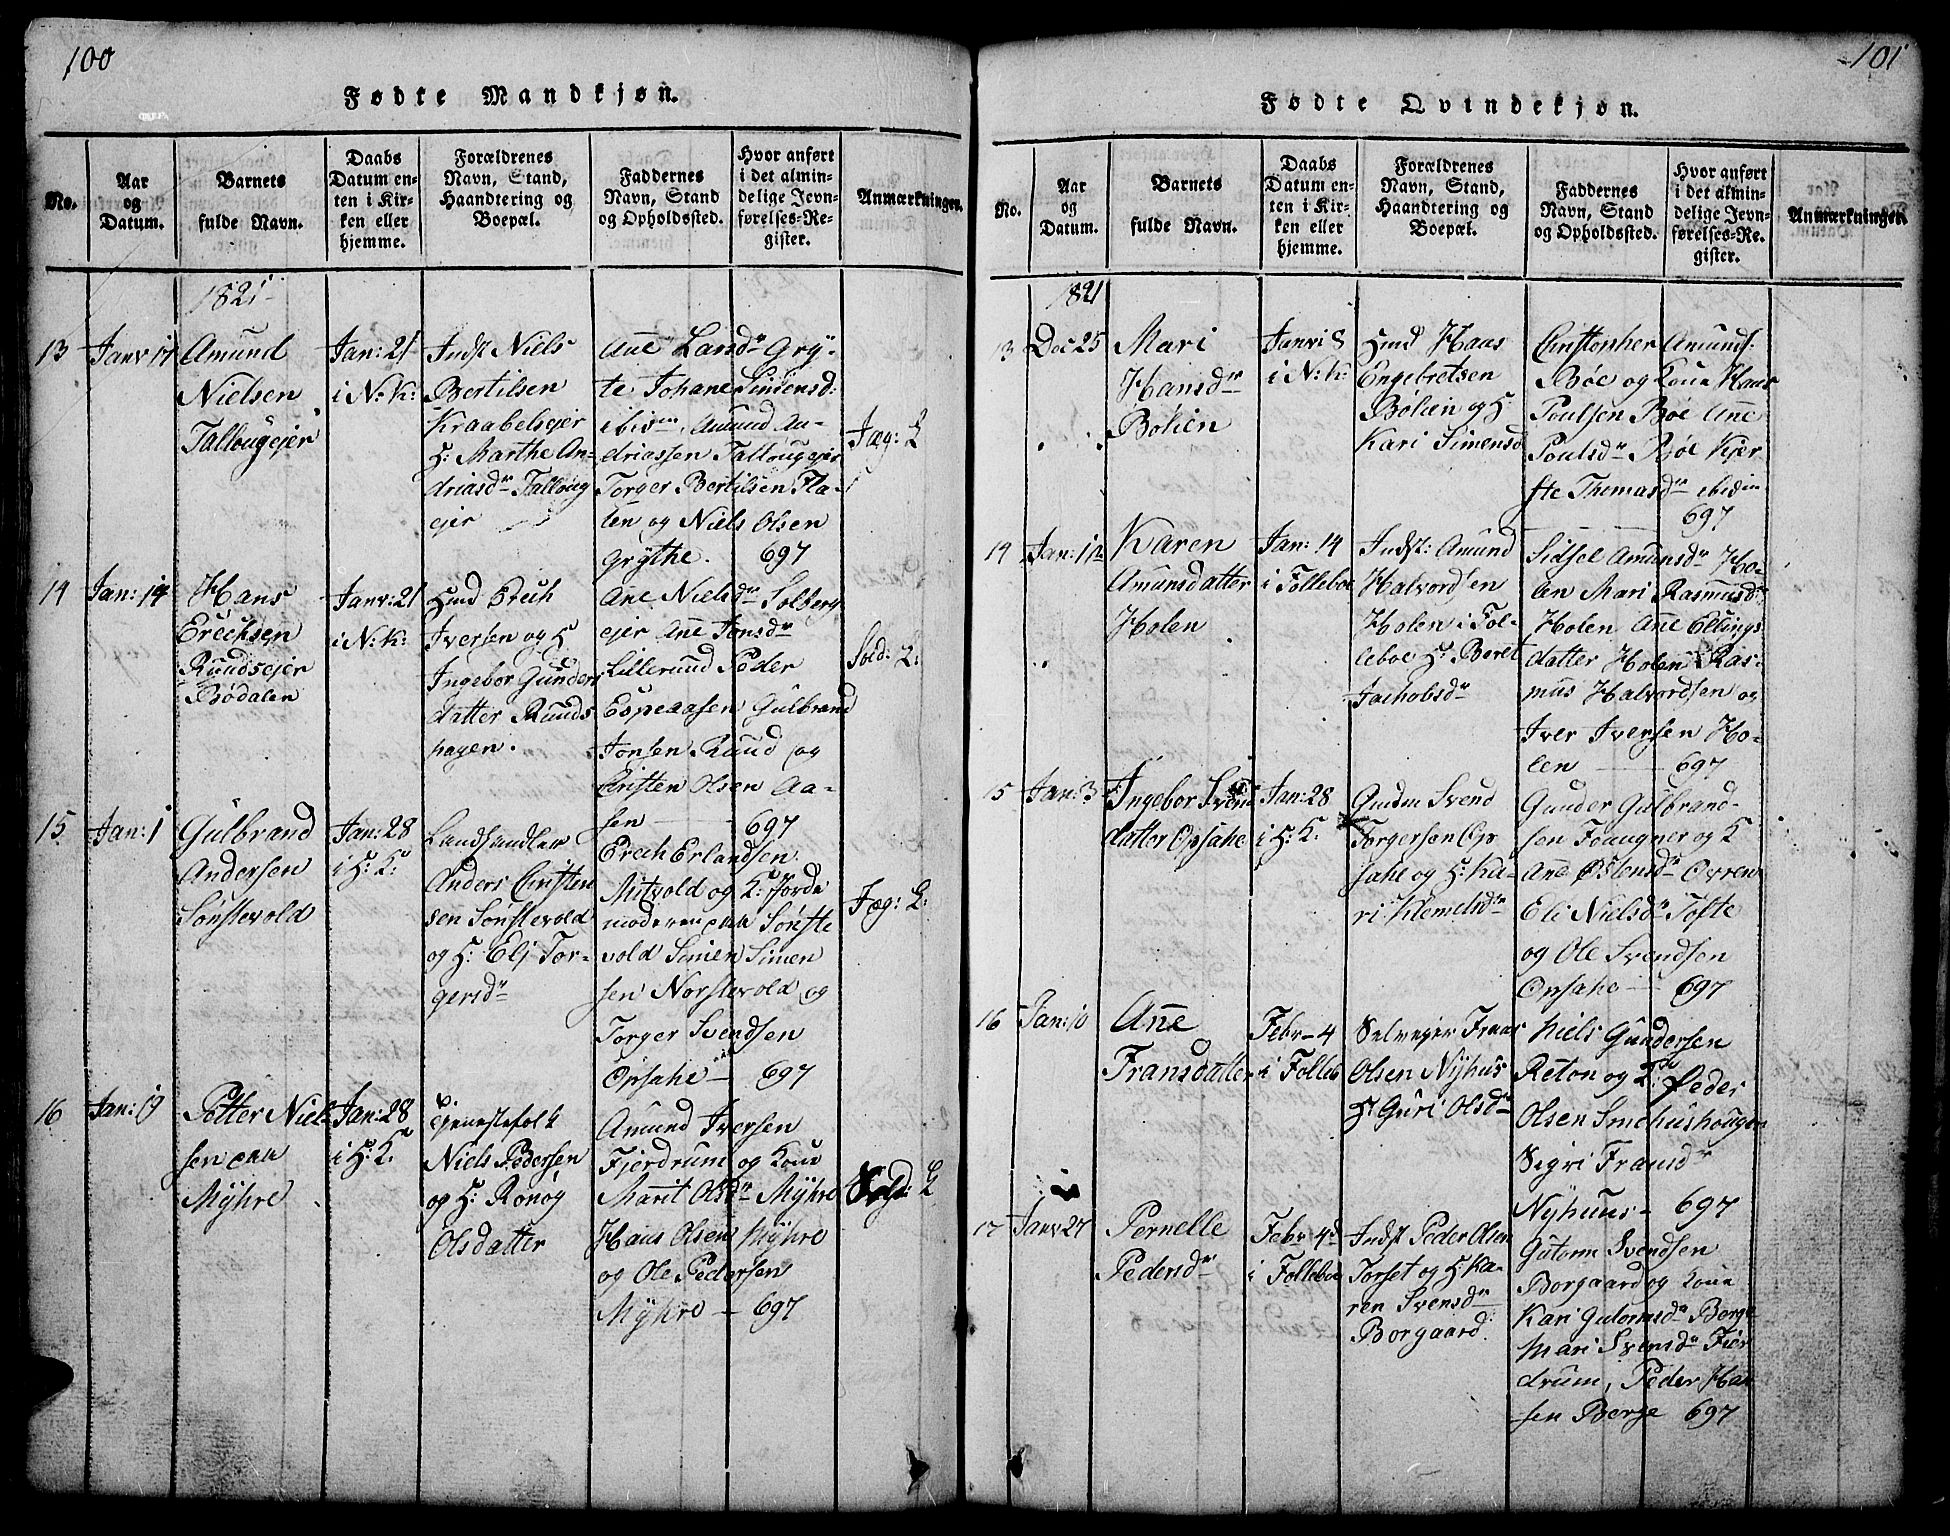 100
Fødte Mandkjøn.
No.
Aar
og
Datum.
Barnets
fulde Navn.
Daabs
Datum en-
ten i Kir-
ken eller
hjemme.
Forældrenes
Navn, Stand,
Haandtering og
Boepæl.
Faddernes
Navn, Stand
og Opholdssted.
Hvor anført
i det almin-
delige Jevn-
førelses-Re-
gister.
Anmærkninger.
1821
13
Janv 17
Amund
Nielsen
Tallougejer
Jan: 21
i N: K:
Indst Niels
Bertilsen
Kraabelsejer
H: Marthe An-
driasdr Talloug
ejer
Añe Larsdr Gry-
te Johane Simensd:
ibivm, Amund An-
driassen Tallougejer
Torger Bertilsen Fla-
ten og Niels Olsen
Grythe. 697
Jæg: L
14
Jan: 14
Hans
Erechsen
Ruudsejer
Bødalen
Janv: 21
i N: K:
Huud Erech
Iversen og H
Ingebor Gunders
datter Ruuds
hagen.
Ane Nielsdr Solberg
ejer Añe Jonsdr
Lillerund Peder
Espenasen Gulbrand
Jonsen Ruud og
Christen Olsen Aa-
sen — 697
Sold: L:
15
Jan: 1
Gulbrand
Andersen
Sønstevold
Jan: 28
i H: K:
Landhandler
Anders Christen
sen Sønstevold
og H: Eli Tor-
gersdr
Erech Erlandsen
Mitvold og K: Jorde
moderen paa Sønste
vold Simen Simen
sen Norstevold og
Torger Svendsen
Opsahe — 697
Jæg: L:
16
Jan: 19
Petter Niel-
sen paa
Myhre
Jan: 28
i H: K.
Tjenestefolk
Niels Pedersen
og H: Rønøg
Olsdatter
Amund Iversen
Fjerdrum og Kone
Marit Olsdr Myhre
Hans Olsen Myhre
og Ole Pedersen
Myhre — 697
Sold: L
101
Fødte Qvindekjøn.
No.
Aar
og
Datum.
Barnets
fulde Navn.
Daabs
Datum en-
ten i Kir-
ken eller
hjemme.
Forældrenes
Navn, Stand,
Haandtering og
Boepæl.
Faddernes
Navn, Stand
og Opholdssted.
Hvor anført
i det almin-
delige Jevn-
førelses-Re-
gister.
Anmærkninger.
1821
13
Dec 25
Mari
Hansdr
Bøhen
Janvi 8
i N: K:
Huud Hans
Engebretsen
Bøhen og H:
Kari Simensd
Christopher Amunds.
Bøe og Kone Hans
Poulsen Bøe Añe
Poulsdr Bøe Kjer
ste Thomasdr ibidm
697
14
Jan: 12
Karen
Amunsdatter
Holen
Jan: 14
i Folleboe
Indst: Amund
Halvordsen
Holen i Fol-
leboe H: Beret
Jachobsdr
Sidsel Amunsdr Ho-
len Mari Rasmusdr
Holen Añe Ellings-
datter Holen Ras-
mus Halvordsen og
Iver Iversen Ho-
len — 697
15
Jan: 3
Ingebor Svend
datter Opsahe
Jan: 28
i H: K.
Gudm Svend
Torgersen Op
sahe og H: Ka-
ri Klemetsdr
Gunder Gulbrand-
sen Foaugner og K
Añe Østensdr Ovren
Eli Nielsdr Tofte
og Ole Svendsen
Opsahe — 697
16
Jan: 10
Añe
Fransdatter
Febr— 4
i Folleb
Selvejer Frans
Olsen Nyhus
H: Guri Olsdr
Niels Gundersen
Reton og K: Peder
Olsen Smehushougen
Sigri Fransdr
Nyhuus- 697
17
Janv 27
Pernelle
Pedersdr
Febr 4d
i Folleboe
Indst Peder Olsen
Torset og H Ka-
ren Svensdr
Borgaard.
Gutorm Svendsen
Borgaard og Kone
Kari Gutormsdr Borge
Mari Svensdr Fier
drum, Peder Han
sen Berge 697